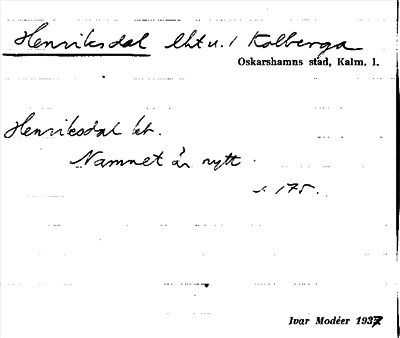 Henriksdal lht u. / Kolberga
Oskarshamns stad, Kalm. l.
Henriksdal ht.
Namnet är nytt.
s. 175.
Ivar Modéer 1937